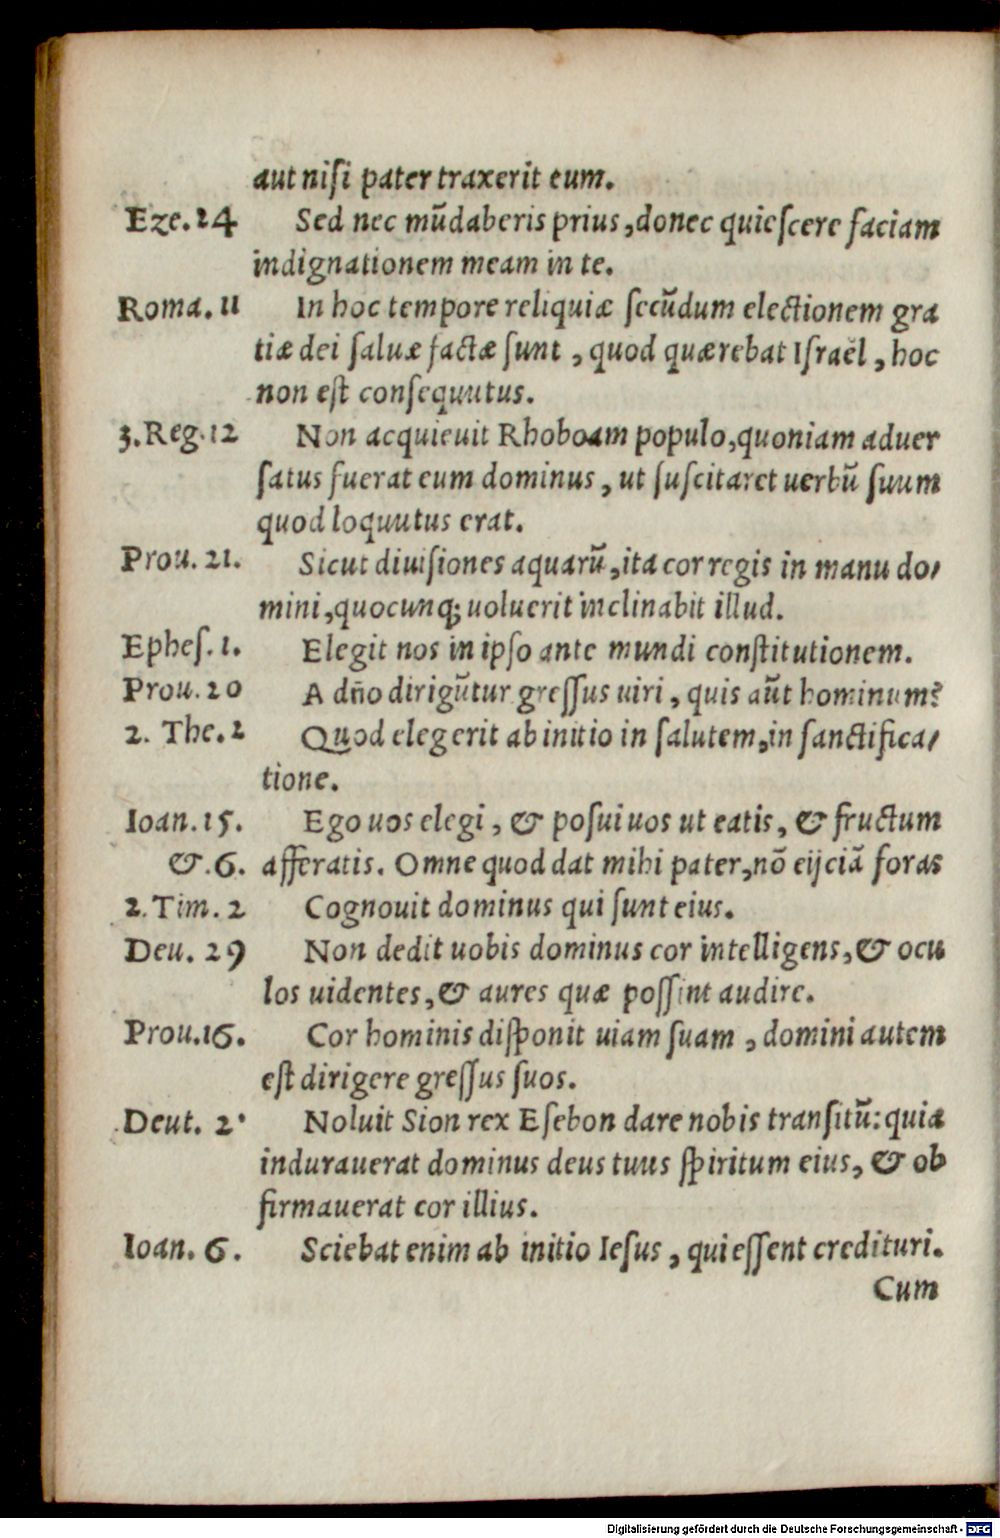 aut niſi pater traxerit eum.
Eze. 24 Sed nec mũdaberis prius, donec quieſcere faciam
indignationem meam in te.
Roma. 11 In hoc tempore reliquiæ ſecũdum electionem gra
tiæ dei ſaluæ factæ ſunt, quod quærebat Iſraël, hoc
non eſt conſequutus.
3. Reg. 12 Non acquieuit Rhoboam populo, quoniam aduer
ſatus fuerat eum dominus, ut ſuſcitaret uerbũ ſuum
quod loquutus erat.
Prou. 21. Sicut diuiſiones aquarũ, ita cor regis in manu do⸗
mini, quocunq; uoluerit inclinabit illud.
Epheſ. 1. Elegit nos in ipſo ante mundi conſtitutionem.
Prou. 20 A dño dirigũtur greſſus uiri, quis aũt hominum?
2. The. 2 Quod elegerit ab initio in ſalutem, in ſanctifica⸗
tione.
Ioan. 15. Ego uos elegi, & poſui uos ut eatis, & fructum
&. 6. afferatis. Omne quod dat mihi pater, nõ eijciã foras
2. Tim. 2 Cognouit dominus qui ſunt eius.
Deu. 29 Non dedit uobis dominus cor intelligens, & ocu
los uidentes, & aures quæ poſſint audire.
Prou. 16. Cor hominis diſponit uiam ſuam, domini autem
eſt dirigere greſſus ſuos.
Deut. 2. Noluit Sion rex Eſebon dare nobis tranſitũ: quia
indurauerat dominus deus tuus ſpiritum eius, & ob
firmauerat cor illius.
Ioan. 6. Sciebat enim ab initio Ieſus, qui eſſent credituri.
Cum
Digitalisierung gefördert durch die Deutsche Forschungsgemeinschaft - DFG